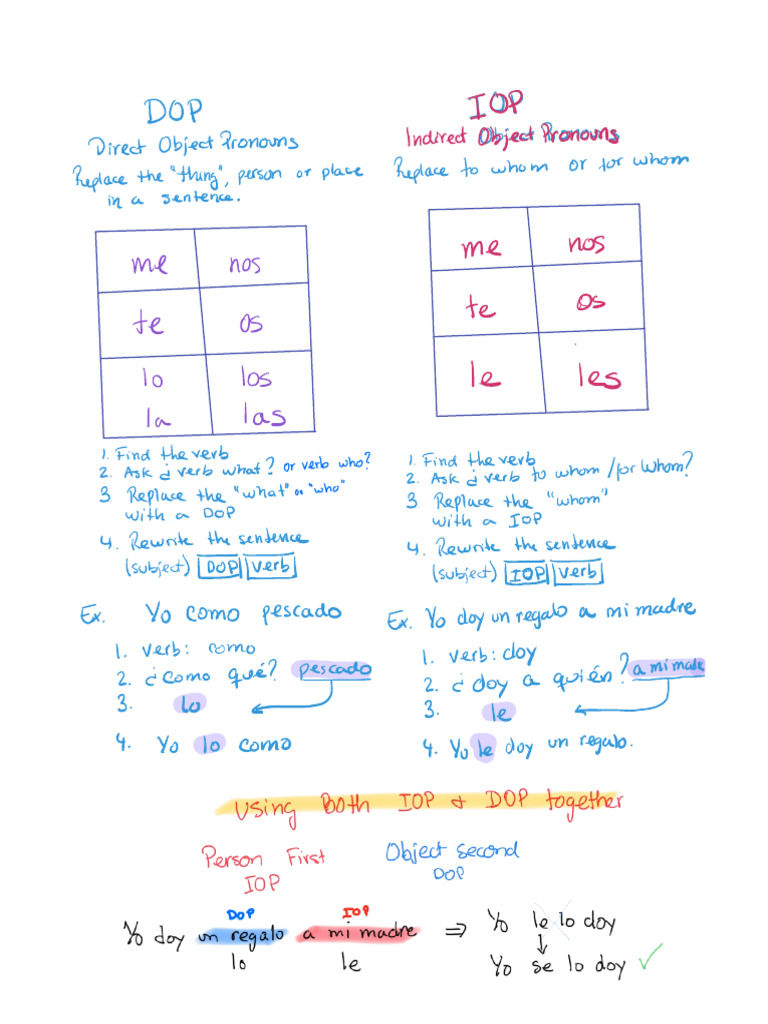 DOP
Direct Object Pronouns
Replace the "thing", person or place
in a sentence.
me nos
te os
lo los
la las
1. Find the verb
2. Ask ¿ verb what? or verb who?
3 Replace the "what" or "who"
with a DOP
4. Rewrite the sentence
(subject) DOP verb
Ex. Yo como pescado
1. verb: como
2. ¿como qué? pescado
3. lo
4. Yo lo como
IOP
Indirect Object Pronouns
Replace to whom or for whom
me nos
te os
le les
1. Find the verb
2. Ask ¿ verb to whom /for whom?
3 Replace the "whom"
with a IOP
4. Rewrite the sentence
(subject) IOP verb
Ex. Yo doy un regalo a mi madre
1. verb: doy
2. ¿doy a quién? a mi made
3. le
4. Yo le doy un regalo.
Using Both IOP & DOP together
Person First Object second
IOP DOP
DOP IOP
Yo doy un regalo a mi madre ⇒ Yo le lo doy
lo le
↓
Yo se lo doy ✓